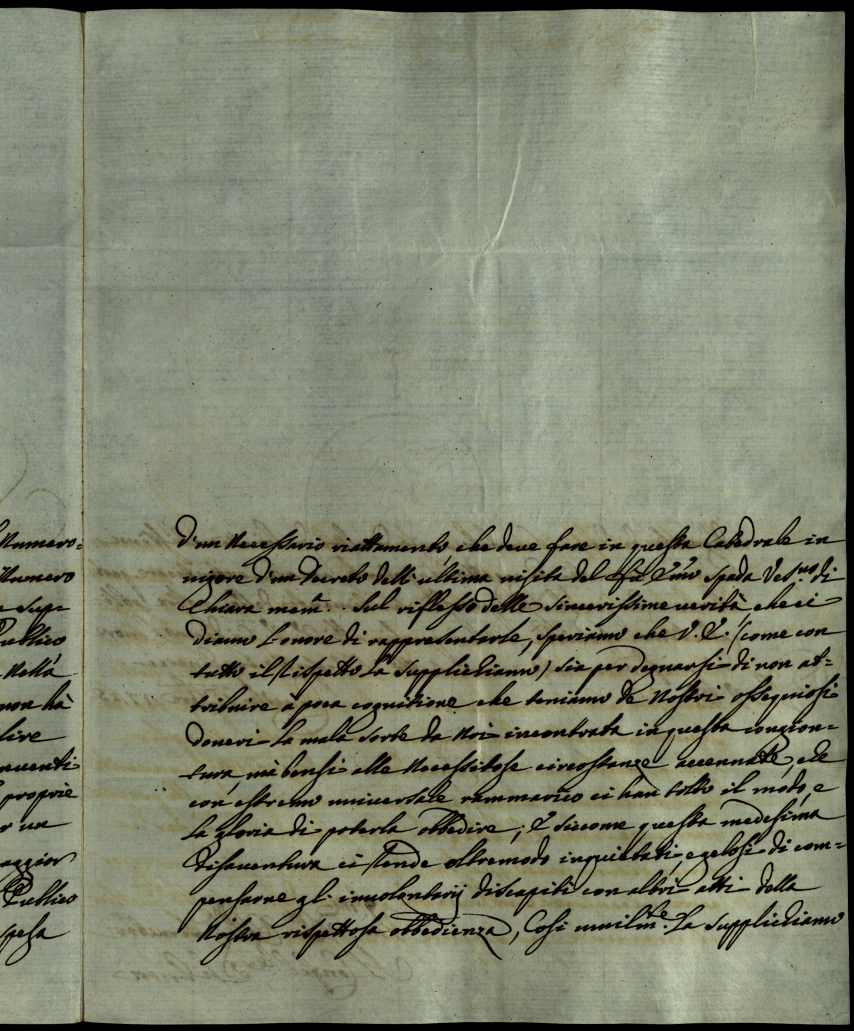 Numero=
Numero
e sup=
Publico
Nella
non hà
lire
nventi
proprie
r un
aggior
Publico
spesa
d'un Necessario riattamento, che deve fare in questa Catedrale in
vigore d'un Decreto dell'ultima visita del fù E.mo Spada Ves.vo di
Chiara mem. Sul riflesso delle sincerissime verità, che ci
diamo l'onore di rappresentarle, speriamo che V. E. (come con
tutto il Rispetto La Supplichiamo) sia per degnarsi di non at=
tribuire à poca cognitione che teniamo de Nostri ossequiosi
doveri la mala sorte da Noi incontrata in questa congion=
tura, mà bensi alle Necessitose circostanze accennate, che
con' estremo universale rammarico ci han tolto il modo, e
la gloria di poterla obbedire; E siccome questa medesima
disaventura ci rende oltremodo inquietati, e gelosi di com=
pensarne gl' involontarij discapiti con altri atti della
Nostra rispettosa obbedienza, Così umilm.te La Supplichiamo